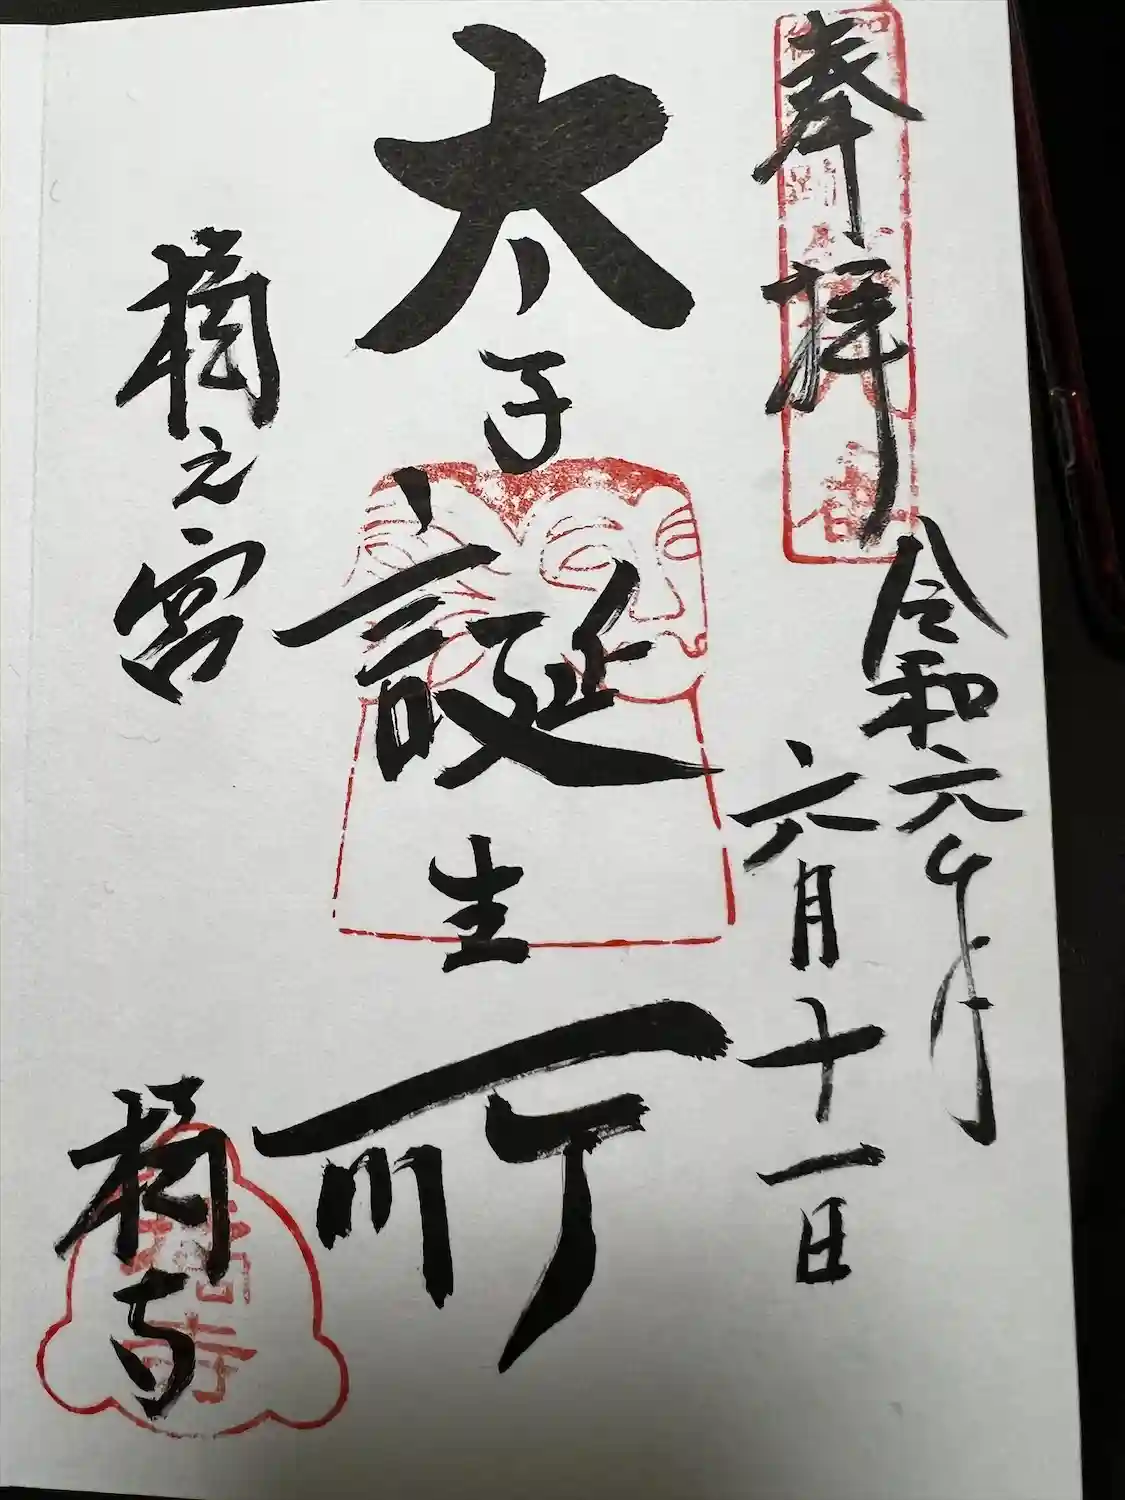 奉拝
令和元年
六月十一日
太子
誕生所
橘之宮
橘寺